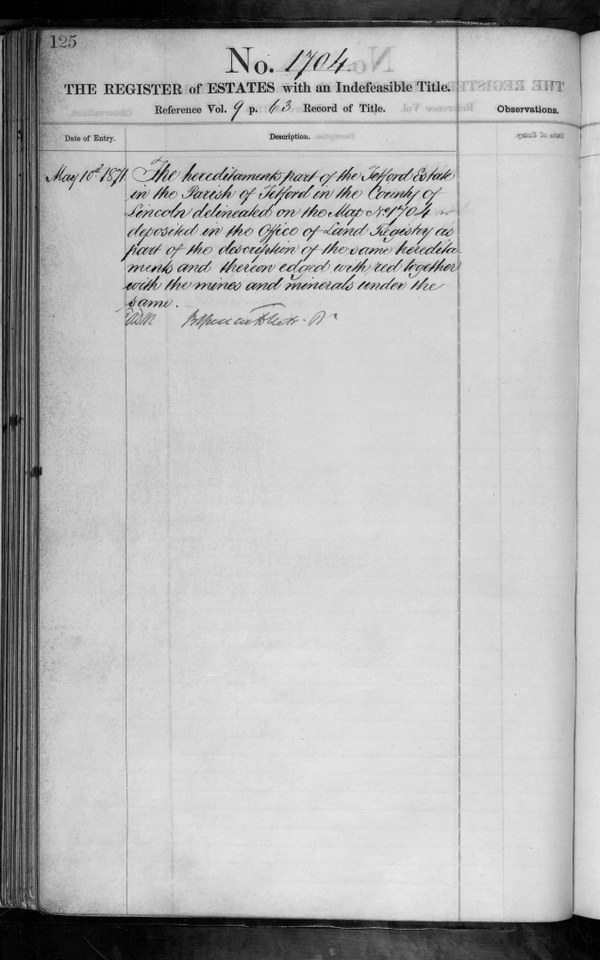 125
No. 1704
THE REGISTER of ESTATES with an Indefeasible Title.
Reference Vol. 9 p. 63 Record of Title.
Observations.
Date of Entry.
Description.
May 10th 1871
The hereditaments part of the Tetford Estate
in the Parish of Tetford in the County of
Lincoln delineated on the Map No 1704
deposited in the Office of Land Registry as
part of the description of the same heredita
ments and thereon edged with red together
with the mines and minerals under the
same.